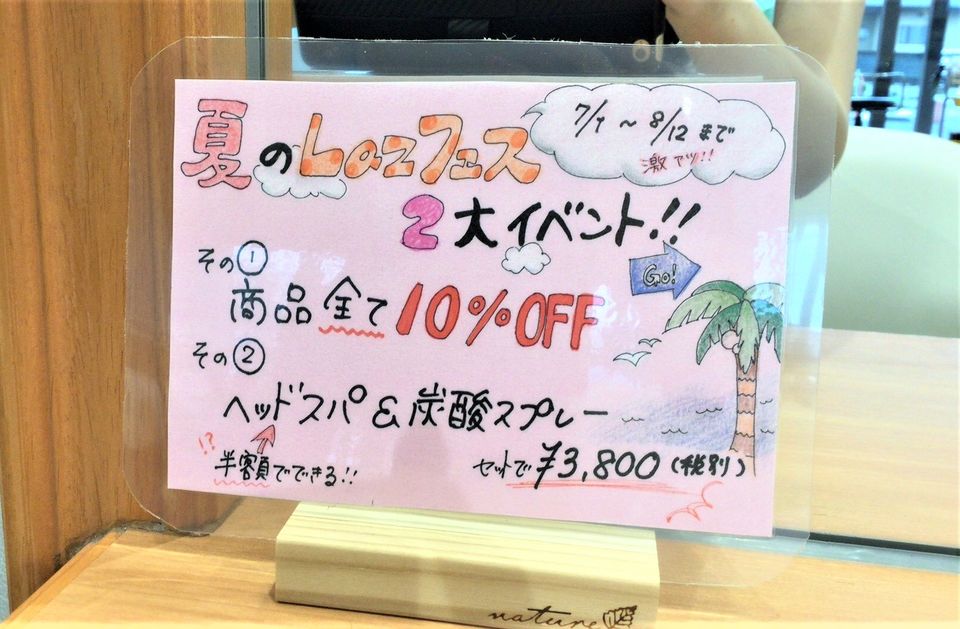 夏のLaziフェス
7/1 ~ 8/12 まで
激でツ!!
2大イベント!!
その①
Go!
商品全て10%OFF
その②
ヘッドスパ&炭酸スプレー
!?
半額でできる!!
セットで¥3,800(税別)
nature